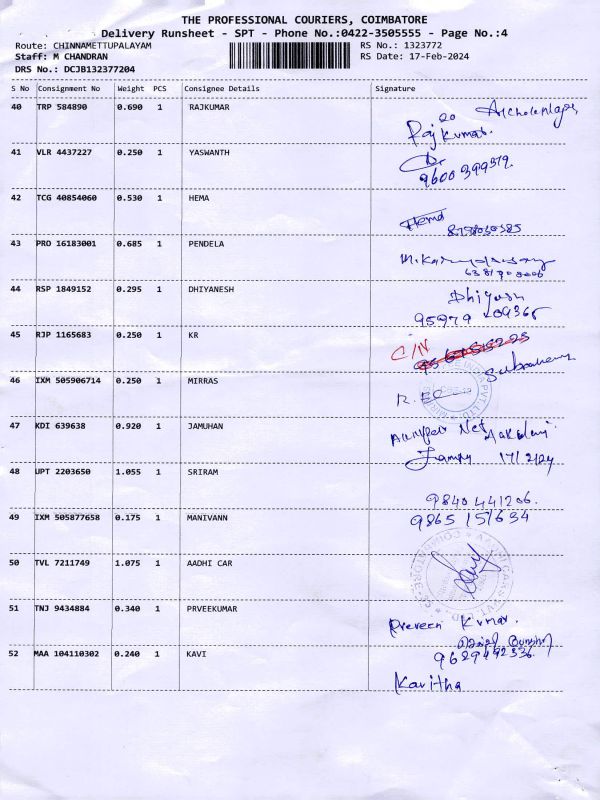 THE PROFESSIONAL COURIERS, COIMBATORE
Delivery Runsheet - SPT - Phone No.:0422-3505555 - Page No.:4
Route: CHINNAMETTUPALAYAM RS No.: 1323772
Staff: M CHANDRAN RS Date: 17-Feb-2024
DRS No.: DCJB132377204
S No Consignment No Weight PCS Consignee Details Signature
40 TRP 584890 0.690 1 RAJKUMAR
Rajkumar
41 VLR 4437227 0.250 1 YASWANTH
9600399379
42 TCG 40854060 0.530 1 HEMA
Hema
43 PRO 16183001 0.685 1 PENDELA
44 RSP 1849152 0.295 1 DHIYANESH
95979 09365
45 RJP 1165683 0.250 1 KR
C/N
46 IXM 505906714 0.250 1 MIRRAS
47 KDI 639638 0.920 1 JAMUHAN
17/2/24
48 UPT 2203650 1.055 1 SRIRAM
9840441206.
49 IXM 505877658 0.175 1 MANIVANN
9865151634
50 TVL 7211749 1.075 1 AADHI CAR
51 TNJ 9434884 0.340 1 PRVEEKUMAR
Praveen Kumar
52 MAA 104110302 0.240 1 KAVI
9629492336.
Kavitha